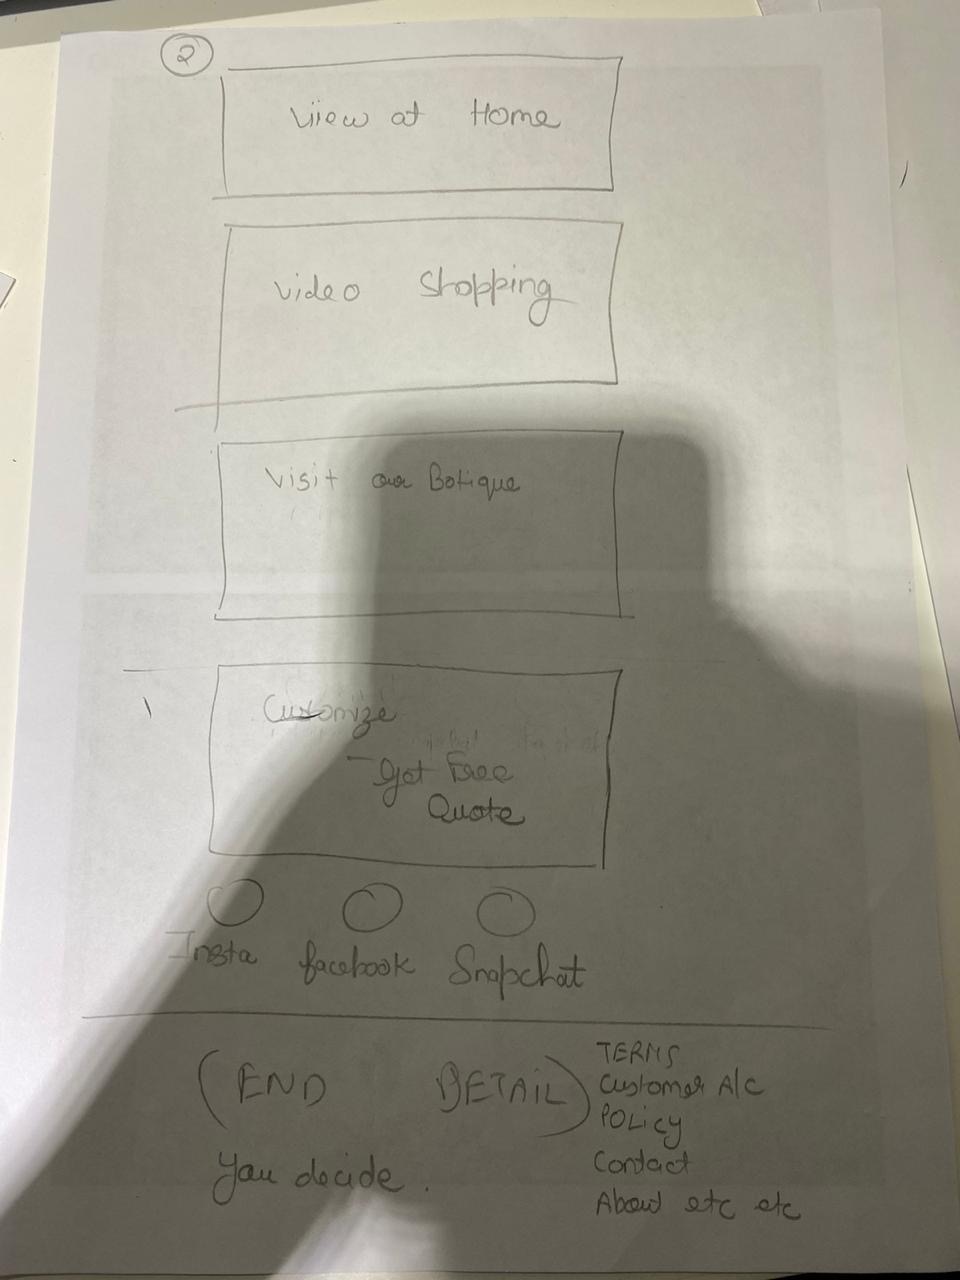 2
View at Home
Video Shopping
Visit our Botique
Customize
- Get Free
Quote
Insta facebook Snapchat
(END DETAIL)
You decide.
TERMS
Customer A/C
POLicy
Contact
About etc etc